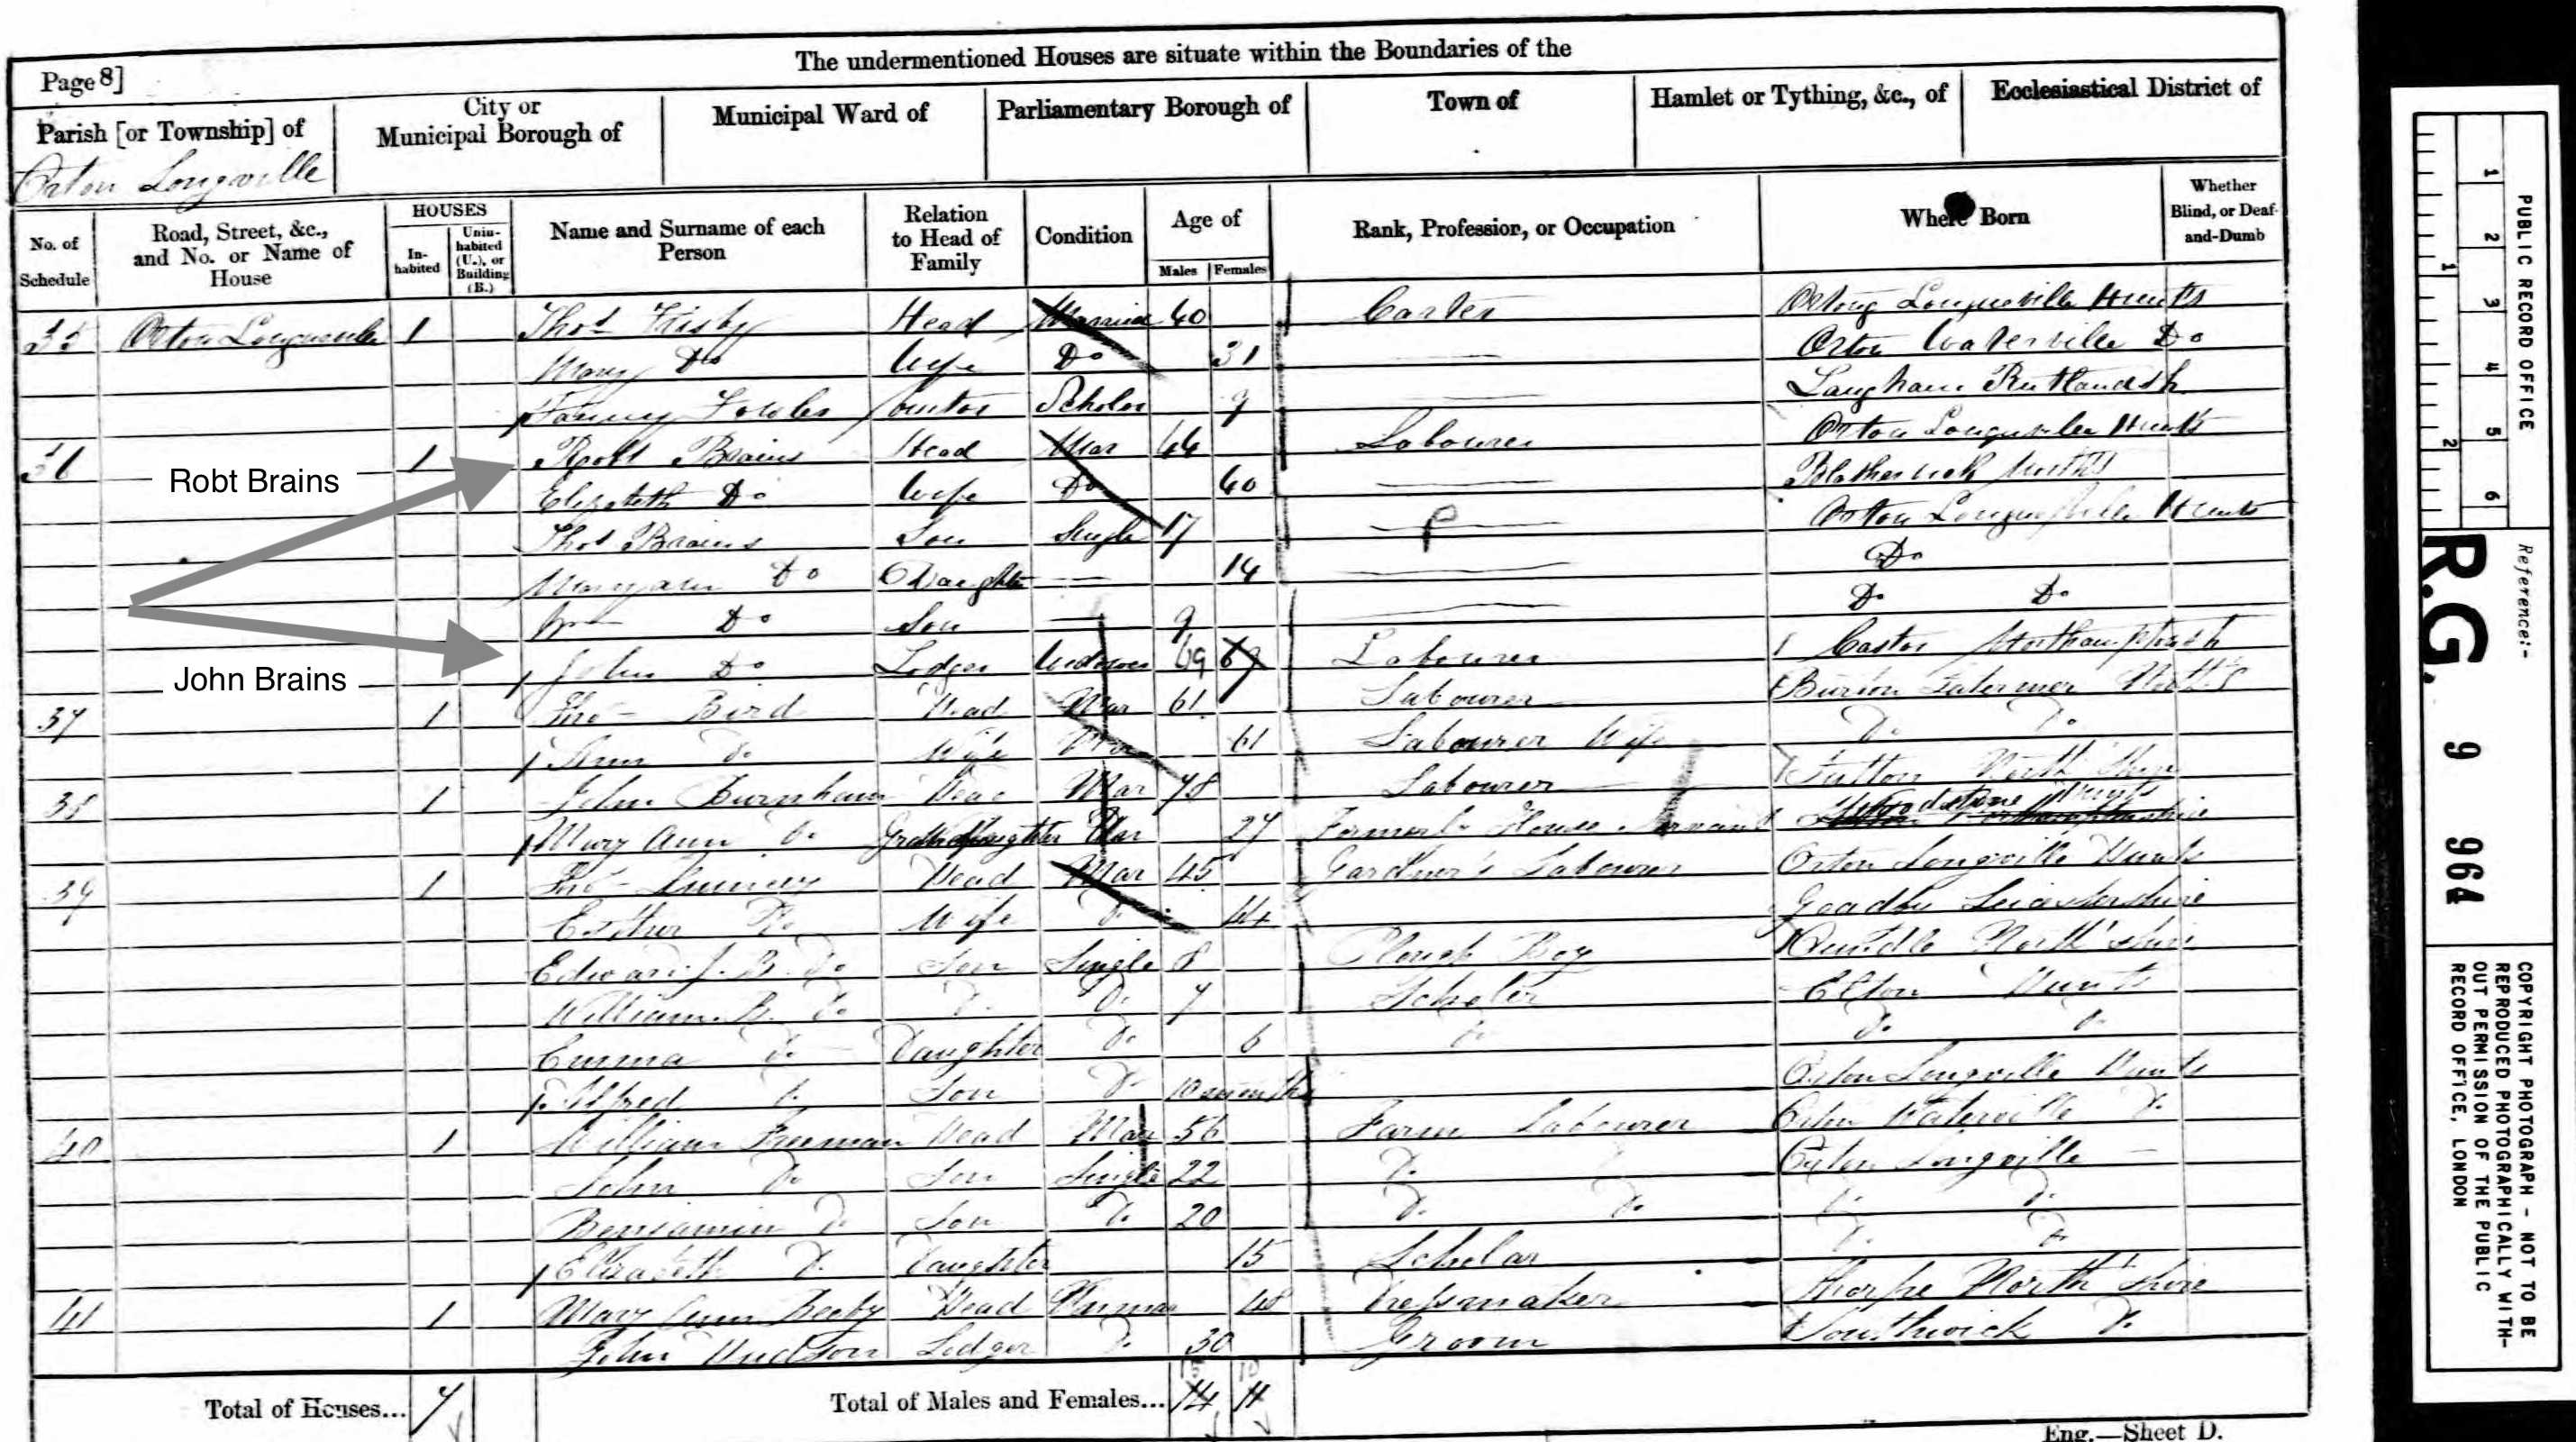 The undermentioned Houses are situate within the Boundaries of the
Page 8]
Parish [or Township] of
Orton Longville
City or
Municipal Borough of
Municipal Ward of
Parliamentary Borough of
Town of
Hamlet or Tything, &c., of
Ecclesiastical District of
No. of
Schedule
Road, Street, &c.,
and No. or Name of
House
HOUSES
In-
habited
Unin-
habited
(U.), or
Building
(B.)
Name and Surname of each
Person
Relation
to Head of
Family
Condition
Age of
Males Females
Rank, Profession, or Occupation
Where Born
Whether
Blind, or Deaf-
and-Dumb
35 Orton Longueville 1 Thos Frisby Head Married 40 Carter Orton Longueville Hunts
Mary Do Wife Do 31 Orton Waterville Do
Fanny Scholar 9 Langham Rutlandsh
36 1 Robt Brains Head Mar 44 Labourer Orton Longueville Hunts
Robt Brains
Elizabeth Do Wife Do 40
Thos Brains Son Single 17 P Orton Longueville Hunts
Maryann Do Daughter 14 Do
Do Son 9 Do Do
John Do Lodger Widower 69 69 Labourer Castor
John Brains
37 1 Jno Bird Head Mar 61 Labourer Burton Latimer
Ann Do Wife 61 Labourer Wife Do Do
38 1 John Burnham Head Mar 78 Labourer Sutton North Shire
Mary Ann Do Granddaughter 27 Formerly House Servant Woodstone Hunts
39 1 Jno Head Mar 45 Gardner's Labourer Orton Longville Hunts
Esther Do Wife Do 44 Leicestershire
Edward J. B. Do Son Single 8 Plough Boy Oundle North'shire
William B. Do Do Do 7 Scholar Elton Hunts
Emma Do Daughter Do 6 Do Do Do
Alfred Do Son Do 10 months Orton Longville Hunts
40 1 William Freeman Head Mar 56 Farm Labourer Orton Waterville Do
John Do Son Single 22 Do Orton Longville
Benjamin Do Son Do 20 Do Do Do Do
Elizabeth Do Daughter 15 Scholar Do Do
41 1 Mary Ann Beeby Head Unmar 48 Dressmaker Thorpe North'shire
John Hudson Lodger Do 30 Groom Southwick Do
Total of Houses... 7
Total of Males and Females... 14 11
15 10
Eng.—Sheet D.
PUBLIC RECORD OFFICE
1 2 3 4 5 6
1 2
Reference:-
R.G. 9 964
COPYRIGHT PHOTOGRAPH - NOT TO BE
REPRODUCED PHOTOGRAPHICALLY WITH-
OUT PERMISSION OF THE PUBLIC
RECORD OFFICE, LONDON